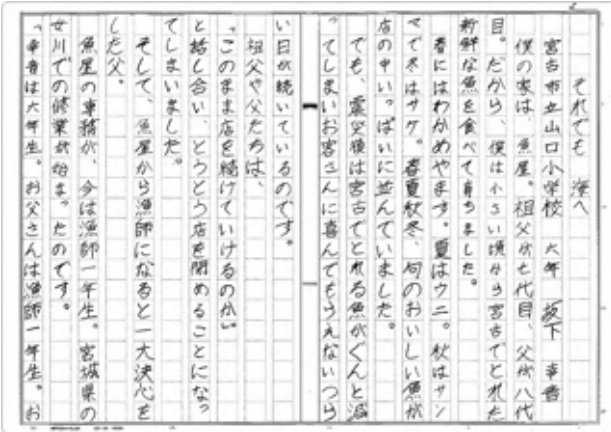 それでも 海へ
宮古市立山口小学校 六年 坂下 幸音
僕の家は、魚屋。祖父が七代目、父が八代
目。だから、僕は小さい頃から宮古でとれた
新鮮な魚を食べて育ちました。
春にはわかめやます。夏はウニ。秋はサン
マで冬はサケ。春夏秋冬、旬のおいしい魚が
店の中いっぱいに並んでいました。
でも、震災後は宮古でとれる魚がぐんと減
ってしまいお客さんに喜んでもらえないつら
い日が続いているのです。
祖父や父たちは、
「このまま店を続けていけるのか。」
と話し合い、とうとう店を閉めることになっ
てしまいました。
そして、魚屋から漁師になると一大決心を
した父。
魚屋の専務が、今は漁師一年生。宮城県の
女川での修業が始まったのです。
「幸音は六年生。お父さんは漁師一年生。お